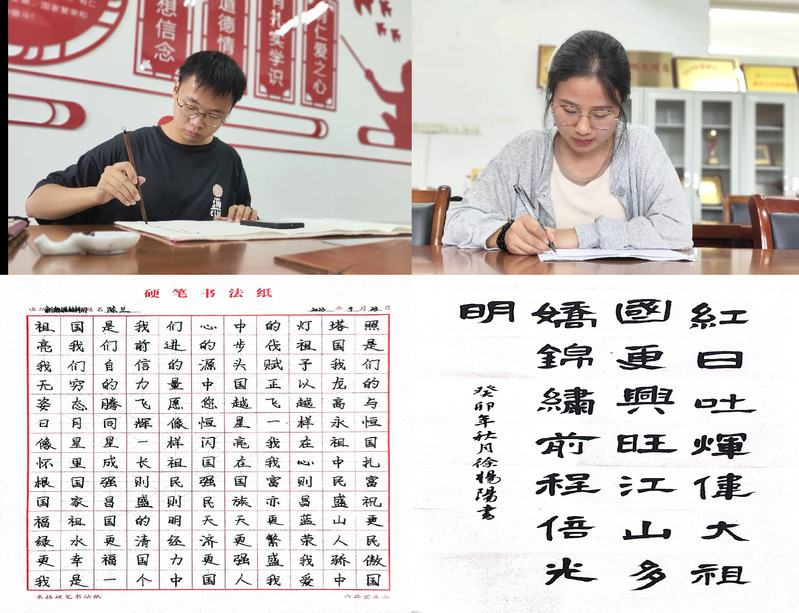 想信念
道德情
有扎实学识
有仁爱之心
硬笔书法纸
姓名 陈兰
祖国是我们心中的灯塔照
亮我们前进的步伐祖国是
我们自信的源头赋予我们
无穷的力量中国正以龙的
姿态腾飞愿您越飞越高与
日月同辉像恒星一样永恒
像星星一样闪亮我在祖国
怀里成长祖国在我心中扎
根国强则民强国富则民富
国家昌盛则民族亦昌盛祝
福祖国的明天天更蓝山更
绿水更清经济更繁荣人民
更幸福国力更强盛我骄傲
我是一个中国人我爱中国
紅日吐煇偉大祖
國更興旺江山多
嬌錦繡前程倍光
明
癸卯年秋月徐楊陽書